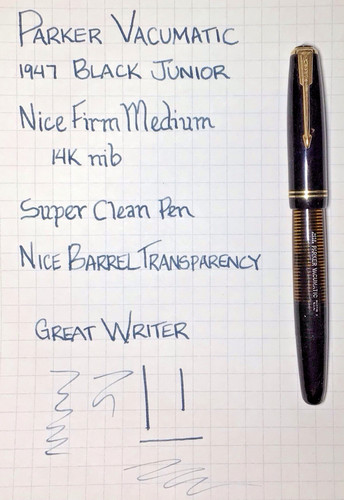 PARKER VACUMATIC
1947 BLACK JUNIOR
Nice Firm Medium
14K nib
Super Clean Pen
NICE BARREL TRANSPARENCY
GREAT WRITER
PARKER VACUMATIC